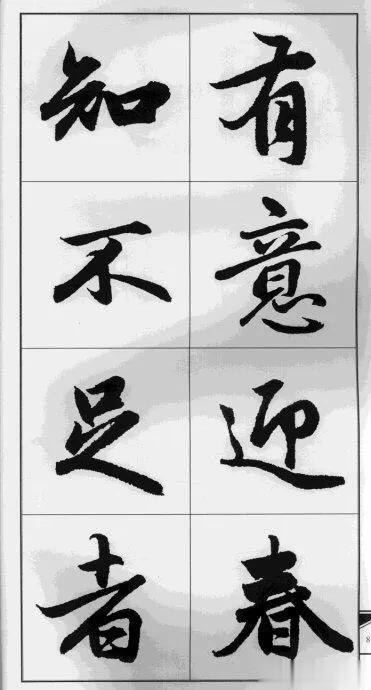 有意迎春
知不足者
8